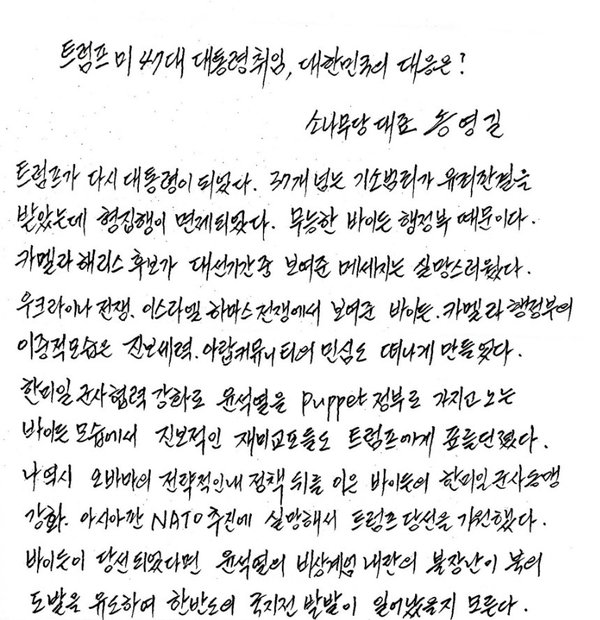 트럼프 미 47대 대통령 취임, 대한민국의 대응은?
소나무당 대표 송영길
트럼프가 다시 대통령이 되었다. 37개 넘는 기소범죄가 유죄판결을
받았는데 형집행이 면제되었다. 무능한 바이든 행정부 때문이다.
카멜라 해리스 후보가 대선기간중 보여준 메세지는 실망스러웠다.
우크라이나 전쟁. 이스라엘 하마스 전쟁에서 보여준 바이든. 카멜라 행정부의
이중적모습은 진보세력. 아랍커뮤니티의 민심도 떠나게 만들었다.
한미일 군사협력 강화로 윤석열을 puppet 정부로 가지고 노는
바이든 모습에서 진보적인 재미교포들도 트럼프에게 표를던졌다.
나 역시 오바마의 전략적인내 정책 뒤를 이은 바이든의 한미일 군사동맹
강화. 아시아판 NATO 추진에 실망해서 트럼프 당선을 기원했다.
바이든이 당선되었다면 윤석열의 비상계엄 내란의 불장난이 북의
도발을 유도하여 한반도의 국지전 발발이 일어났을지 모른다.